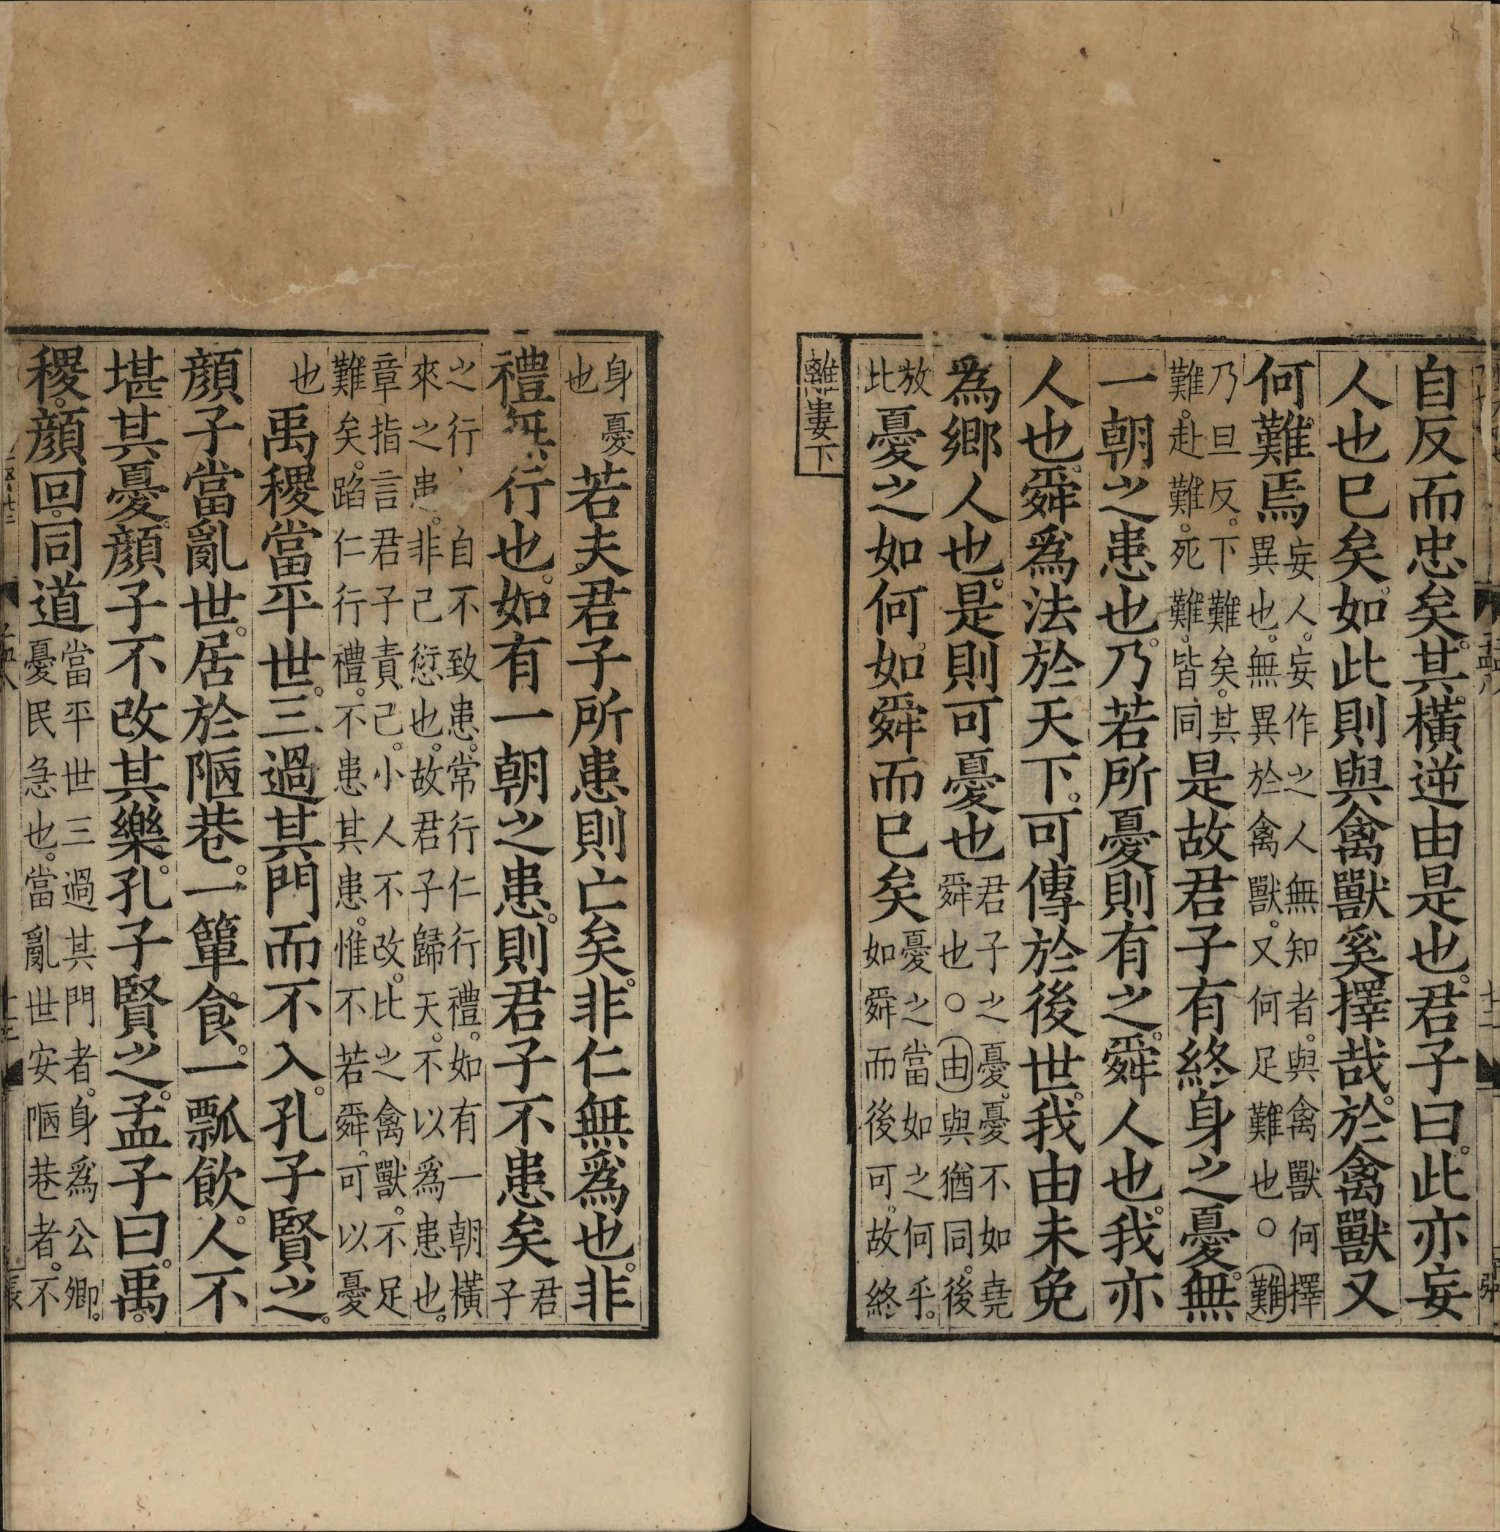 自反而忠矣。其橫逆由是也。君子曰。此亦妄
人也已矣。如此則與禽獸奚擇哉。於禽獸又
何難焉
妄人。妄作之人無知者。與禽獸何擇
異也。無異於禽獸。又何足難也。○難
乃旦反。下難矣。其
難。赴難。死難。皆同
是故君子有終身之憂。無
一朝之患也。乃若所憂則有之。舜人也。我亦
人也。舜爲法於天下。可傳於後世。我由未免
爲鄉人也。是則可憂也
君子之憂。憂不如堯
舜也。○由與猶同。後
放
此
憂之如何。如舜而已矣
憂之當如之何乎。
如舜而後可。故終
離婁下
身憂
也
若夫君子所患則亡矣。非仁無爲也。非
禮無行也。如有一朝之患。則君子不患矣
君
子
之行自不致患。常行仁行禮。如有一朝橫
來之患。非己愆也。故君子歸天。不以爲患也。
章指言君子責己。小人不改。比之禽獸。不足
難矣。蹈仁行禮。不患其患。惟不若舜。可以憂
也
禹稷當平世。三過其門而不入。孔子賢之。
顏子當亂世。居於陋巷。一簞食。一瓢飲。人不
堪其憂。顏子不改其樂。孔子賢之。孟子曰。禹。
稷。顏回。同道
當平世三過其門者。身爲公卿。
憂民急也。當亂世安陋巷者。不